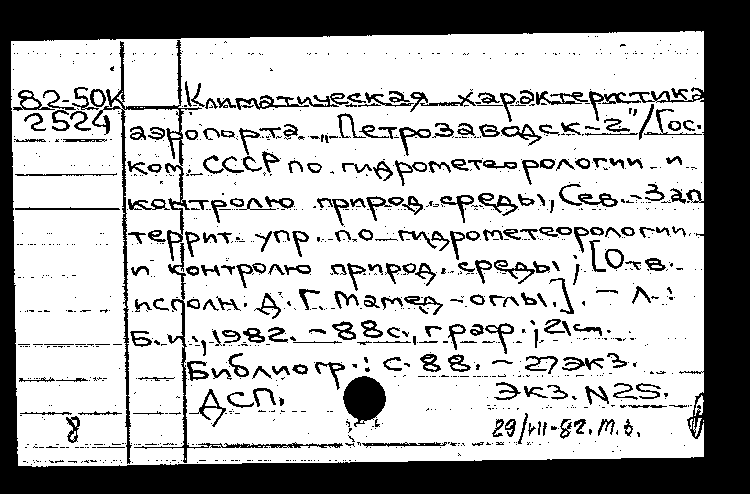 82-50К Климатическая характеристика
2524 аэропорта „Петрозаводск-2"/Гос.
ком. СССР по гидрометеорологии и
контролю природ. среды, Сев.-Зап
террит. упр. по гидрометеорологии
и контролю природ. среды; [Отв.
исполн. Д. Г. Мамед-оглы.]. — Л.:
Б. и., 1982. - 88с., граф.; 21 см.
Библиогр.: с. 88. - 27 экз.
ДСП. Экз. N25.
8 29/VII-82. М.З.